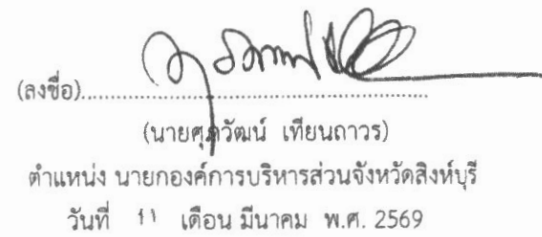 (ลงชื่อ)........................................................
(นายศุภวัฒน์ เทียนถาวร)
ตำแหน่ง นายกองค์การบริหารส่วนจังหวัดสิงห์บุรี
วันที่ ๑๑ เดือน มีนาคม พ.ศ. 2569